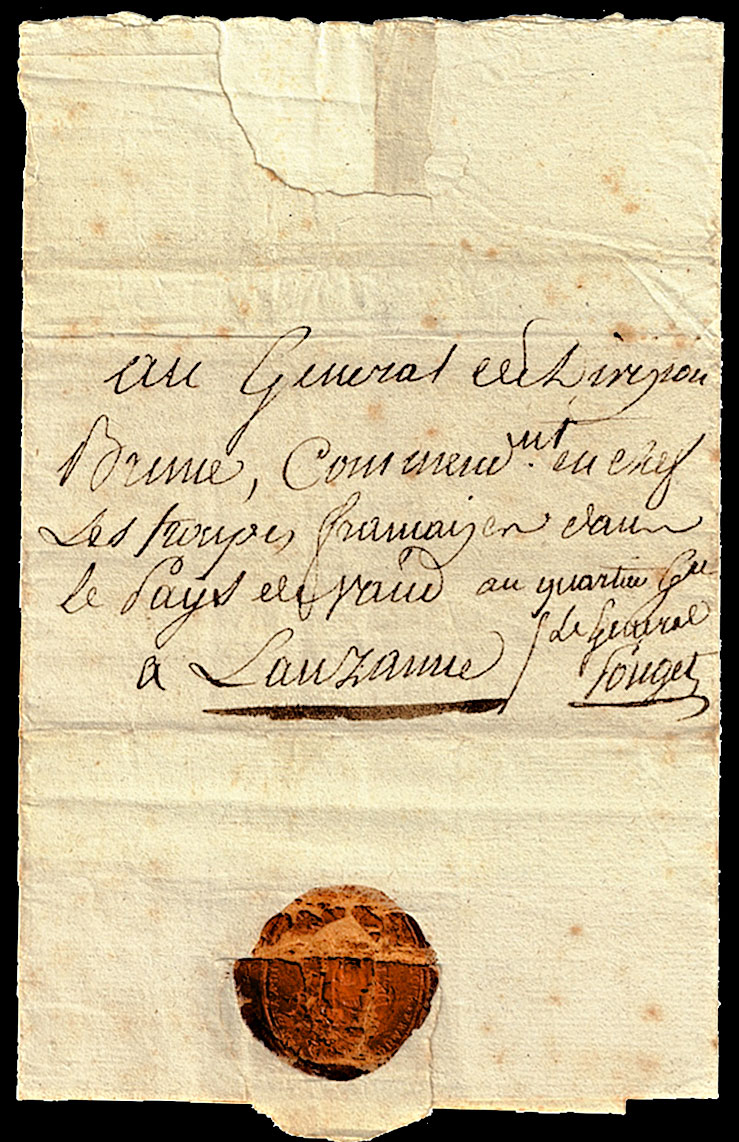 au General de Division
Brune, Commend.nt en chef
Les troupes francaises dans
le Pays de Vaud au quartier Gal
a Lauzanne
Le General
Pouget